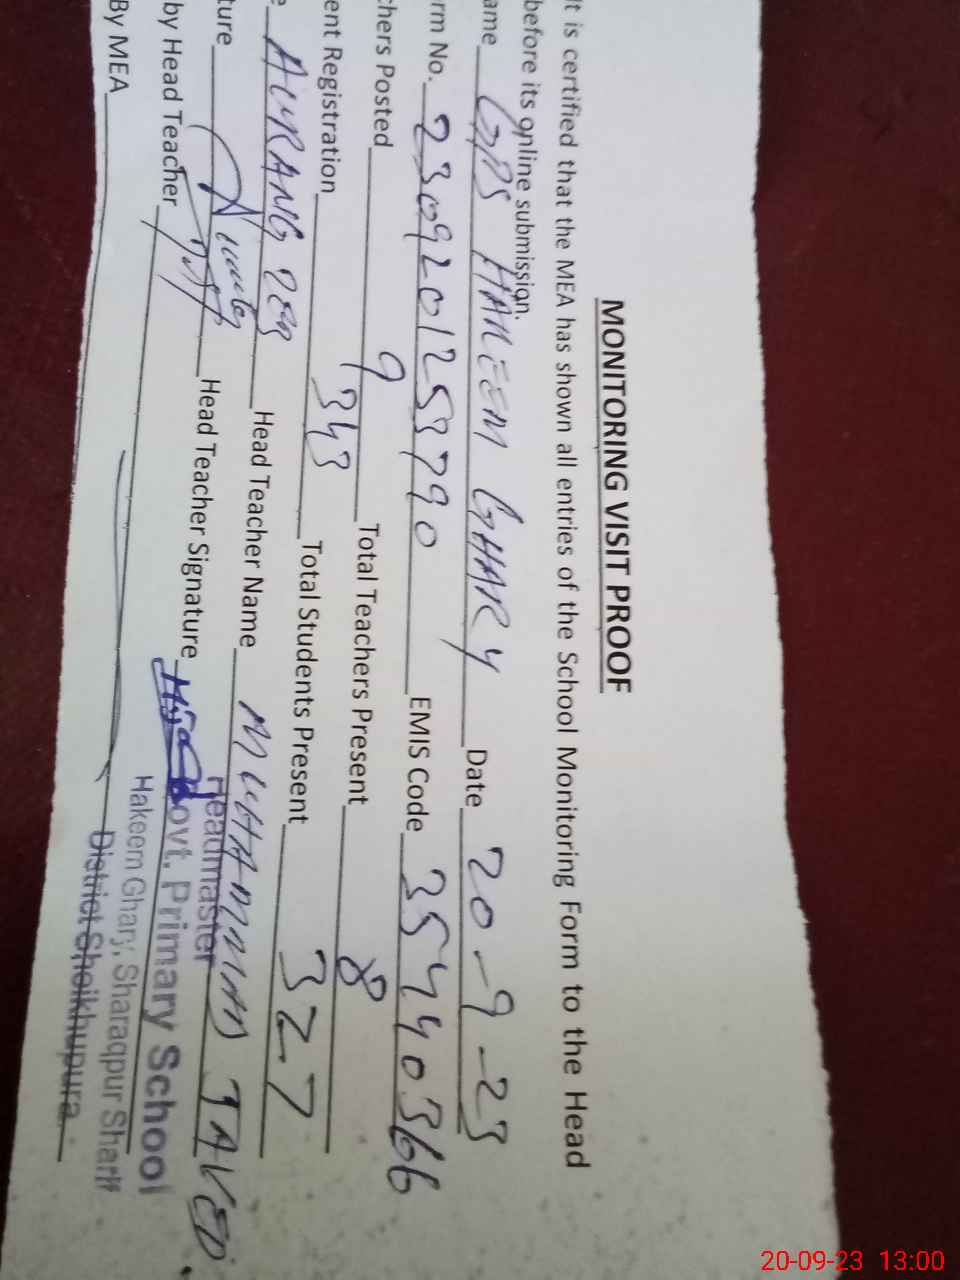 MONITORING VISIT PROOF
It is certified that the MEA has shown all entries of the School Monitoring Form to the Head
before its online submission.
ame GPS HAKEEM GHARY Date 20-9-23
rm No. EMIS Code 35440366
chers Posted 9 Total Teachers Present 8
ent Registration 343 Total Students Present 327
e AURANG ZEB Head Teacher Name MUHAMMAD JAVED
ture Head Teacher Signature
Headmaster
by Head Teacher
Govt. Primary School
Hakeem Ghary, Sharaqpur Sharif
By MEA
District Sheikhupura.
20-09-23 13:00